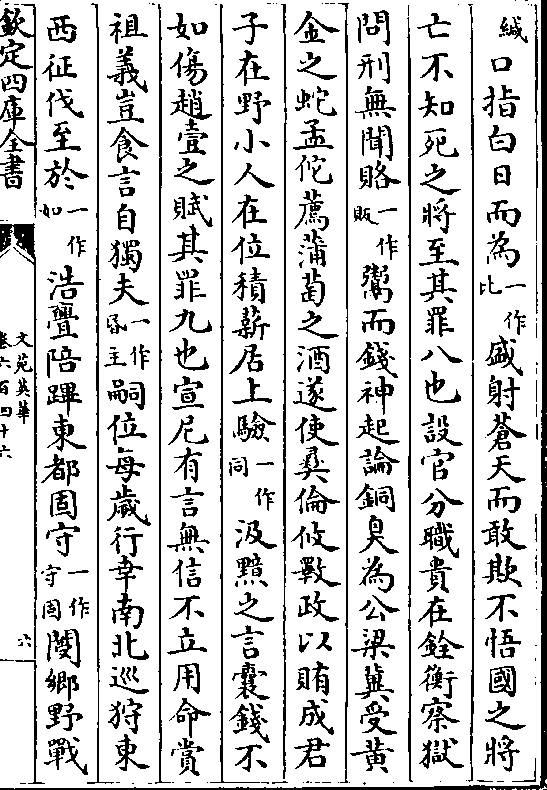 緘口指白日而為一作比盛射蒼天而敢欺不悟國之將
亡不知死之將至其罪八也設官分職貴在銓衡察獄
問刑無聞賂一作販鬻而錢神起論銅臭為公梁冀受黄
金之蛇孟佗薦蒲萄之酒遂使彞倫攸斁政以賄成君
子在野小人在位積薪居上驗一作同汲黯之言囊錢不
如傷趙壹之賦其罪九也宣尼有言無信不立用命賞
祖義豈食言自獨夫一作昏主嗣位每歲行幸南北巡狩東
西征伐至於一作如浩亹陪蹕東都固守一作守固閿鄉野戰
欽定四庫全書
文苑英華
卷六百四十六
六